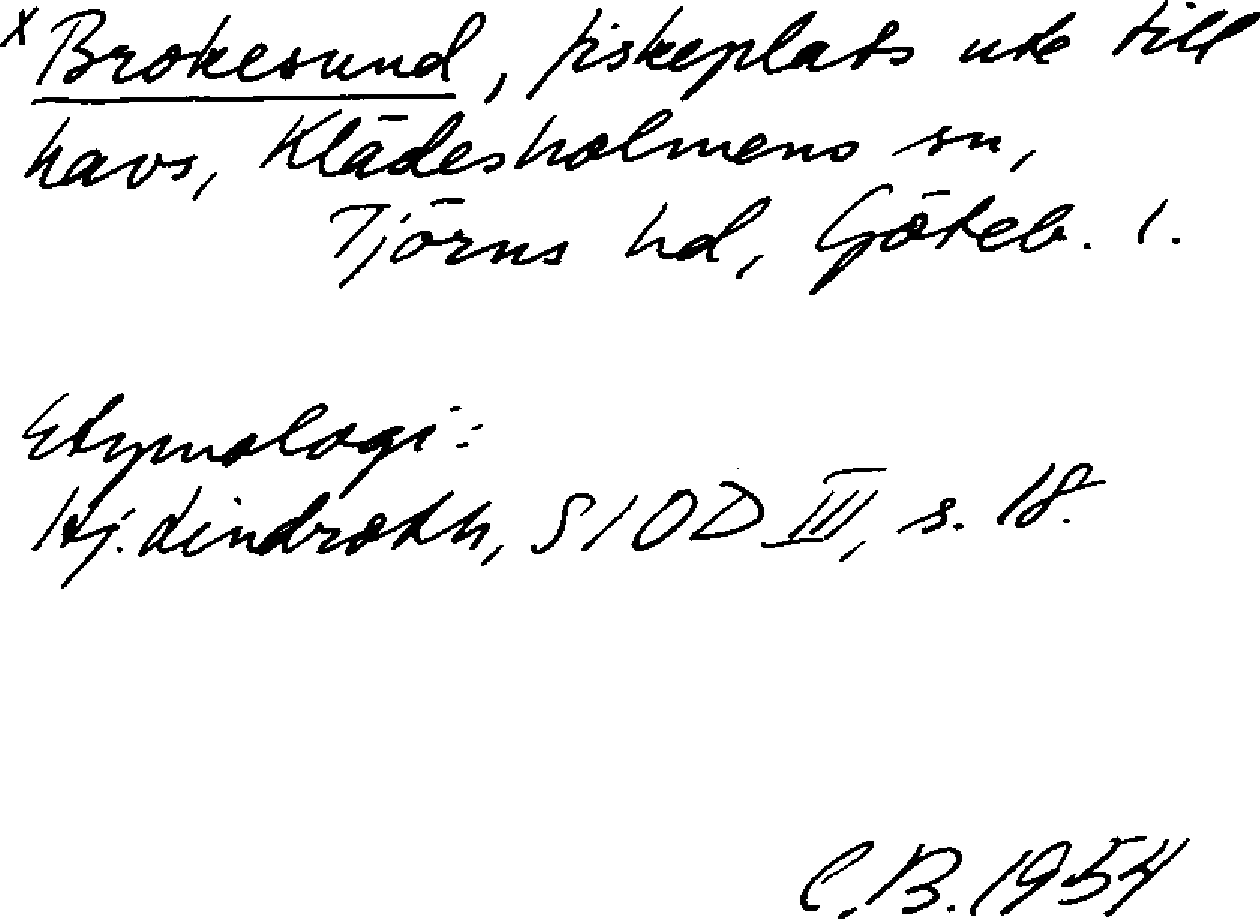 x Brokesund, fiskeplats ute till
havs, Klädesholmens sn,
Tjörns hd, Göteb. l.
Etymologi:
Hj. Lindroth, SIOD III, s. 18.
C.B. 1954